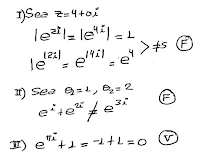 I) Sea z=4+0i
|e^{zi}|=|e^{4i}|=1
|e^{|z|i}|=e^{|4|i}=e^4 >≠s (F)
II) Sea θ₁=1, θ₂=2
e^i+e^{2i}≠e^{3i} (F)
III) e^{πi}+1=-1+1=0 (V)